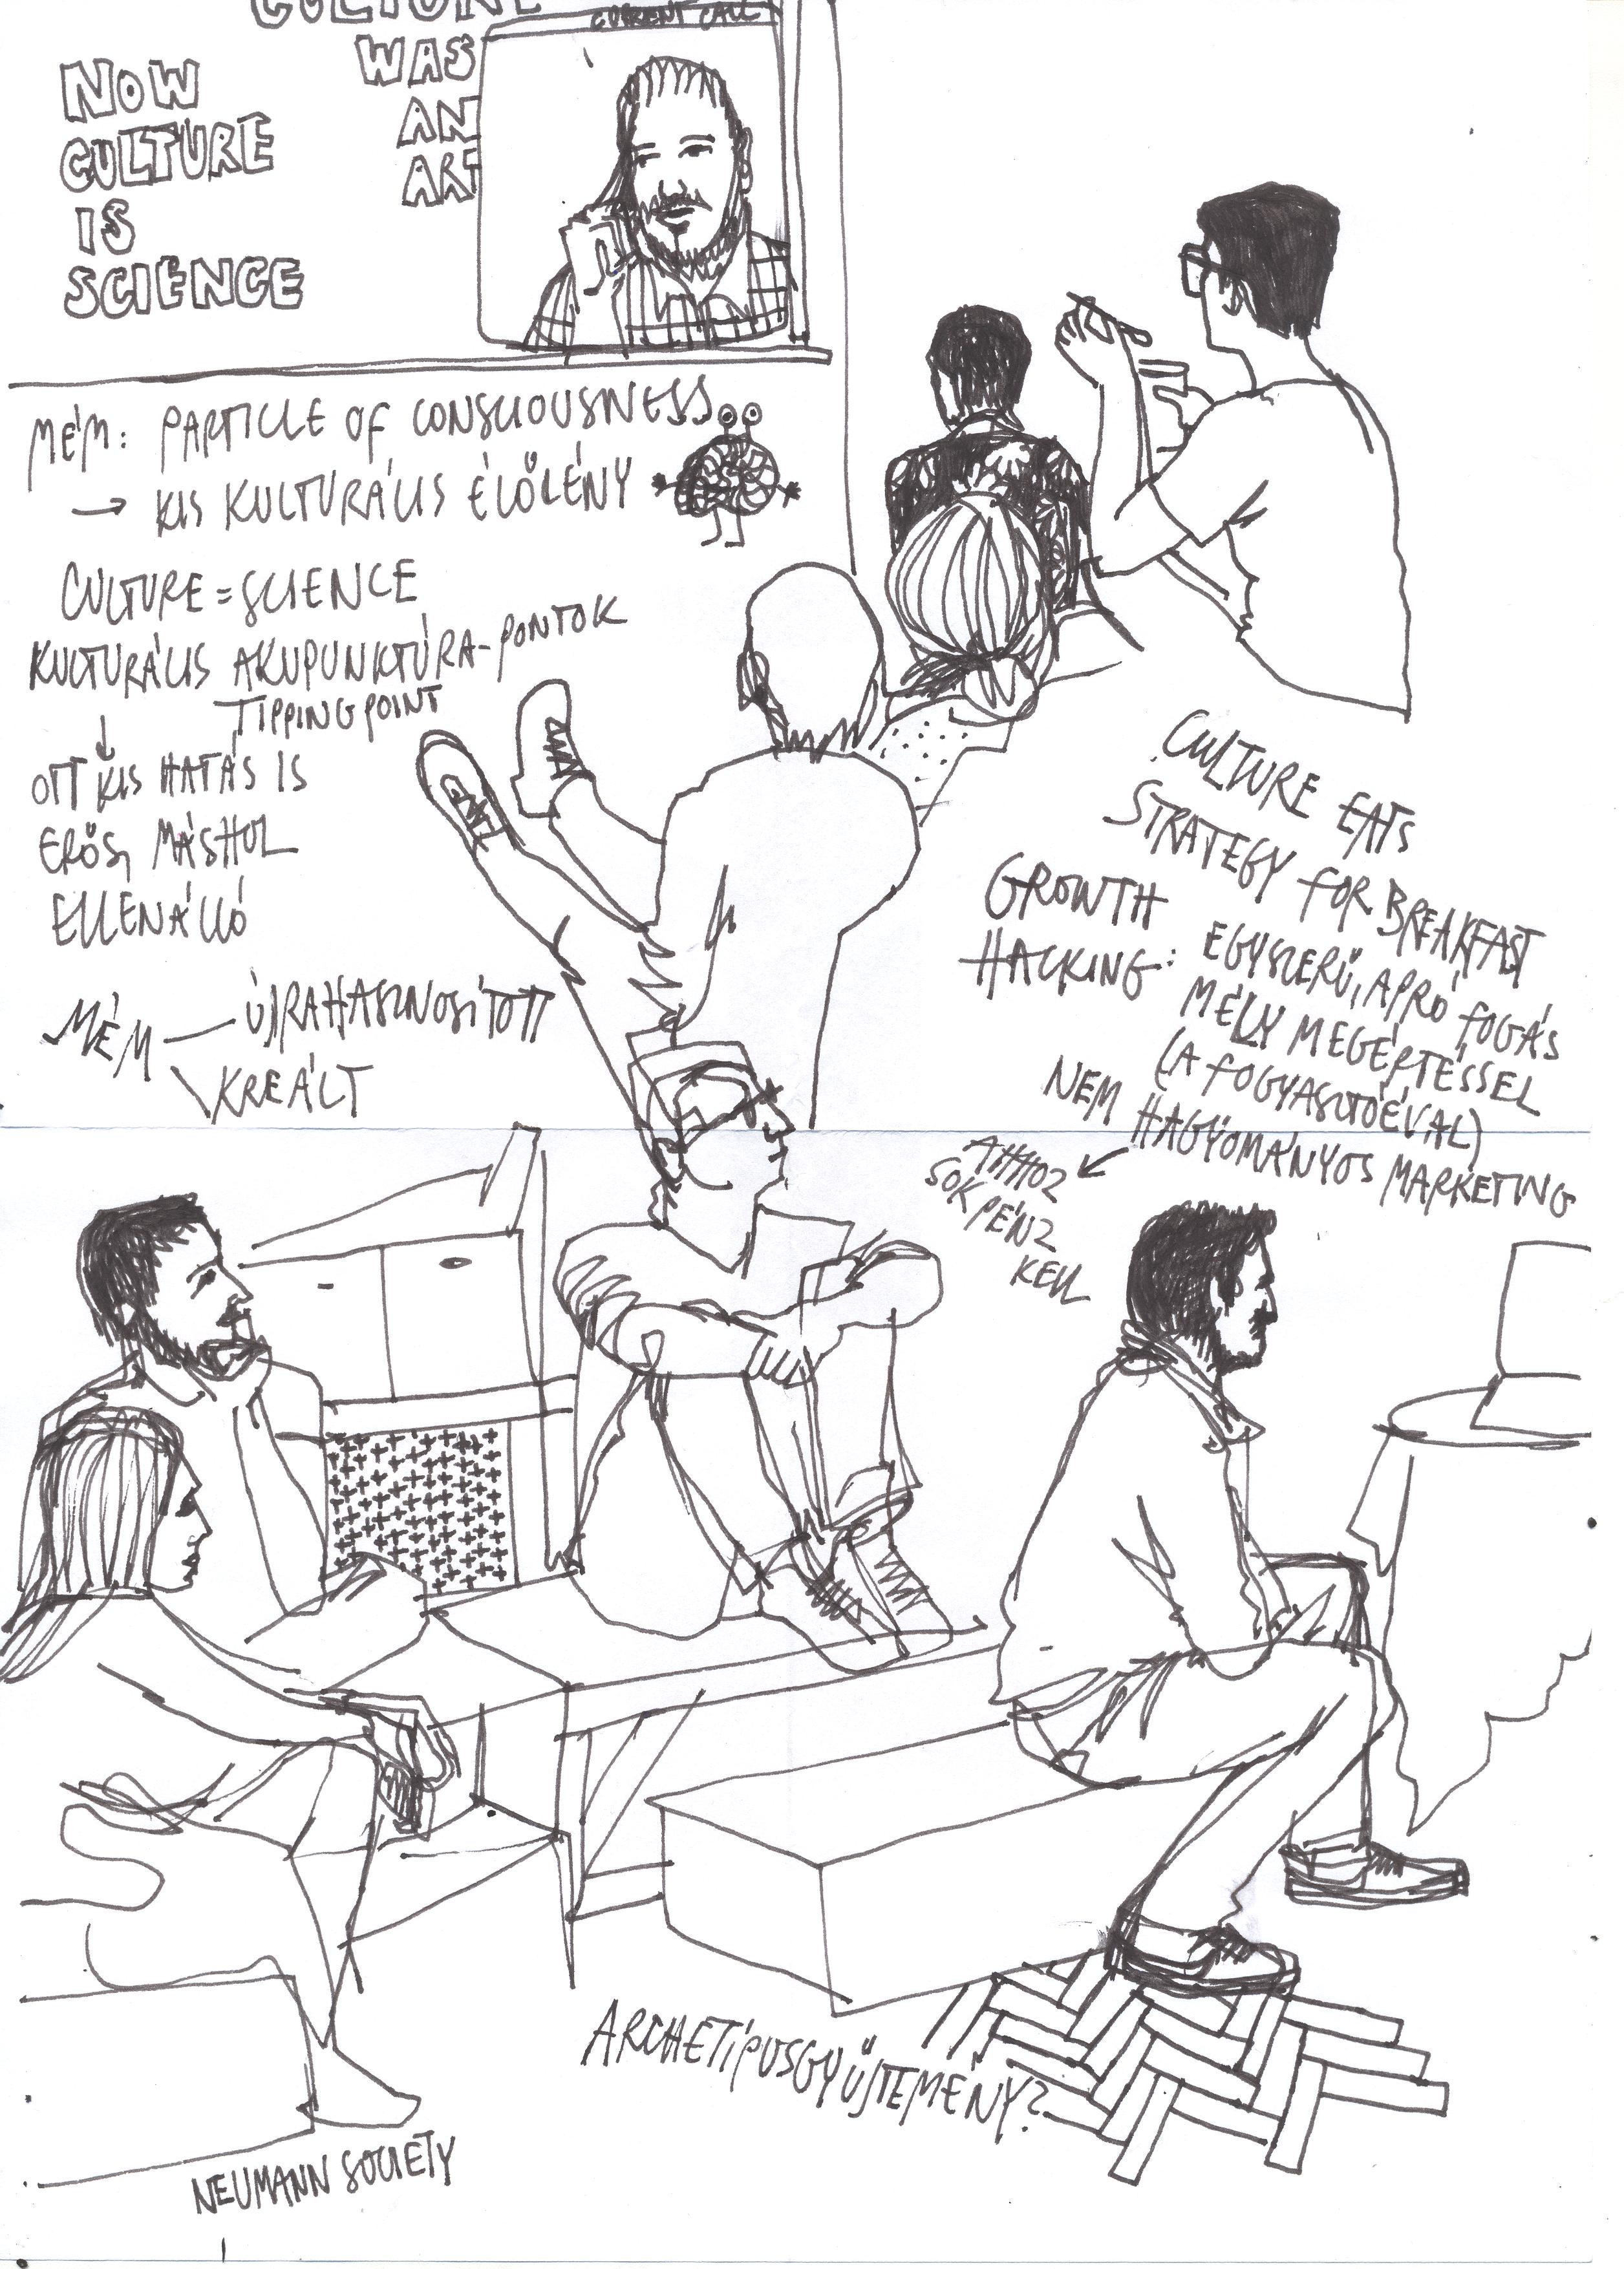 CULTURE
WAS
AN
ART
NOW
CULTURE
IS
SCIENCE
CURRENT CALL
MÉM: PARTICLE OF CONSCIOUSNESS
→ KIS KULTURÁLIS ÉLŐLÉNY
CULTURE = SCIENCE
KULTURÁLIS AKUPUNKTÚRA-PONTOK
TIPPING POINT
↓
OTT KIS HATÁS IS
ERŐS, MÁSHOL
ELLENÁLLÓ
MÉM — ÚJRAHASZNOSÍTOTT
KREÁLT
CULTURE EATS
STRATEGY FOR BREAKFAST
GROWTH
HACKING: EGYSZERŰ, APRÓ FOGÁS
MÉLY MEGÉRTÉSSEL
(A FOGYASZTÓÉVAL)
NEM HAGYOMÁNYOS MARKETING
AHHOZ
SOK PÉNZ
KELL
ARCHETÍPUSGYŰJTEMÉNY?
NEUMANN SOCIETY